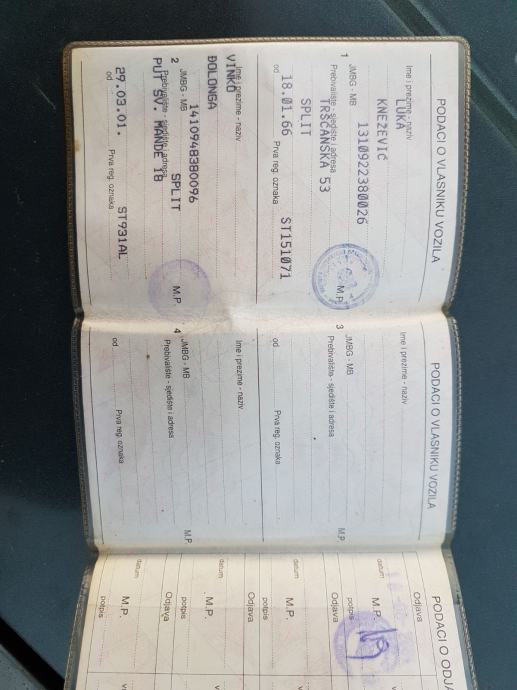 PODACI O VLASNIKU VOZILA
Ime i prezime - naziv
LUKA
KNEŽEVIĆ
1 JMBG - MB
1310922380026
Prebivalište - sjedište i adresa
TRŠĆANSKA 53
SPLIT
18.01.66 ST151071
od Prva reg. oznaka
M.P.
Ime i prezime - naziv
VINKO
ĐOLONGA
2 JMBG - MB
1410948380096
SPLIT
Prebivalište - sjedište i adresa
PUT SV. MANDE 18
M.P.
29.03.01. ST931AL
od Prva reg. oznaka
PODACI O VLASNIKU VOZILA
Ime i prezime - naziv
3 JMBG - MB
Prebivalište - sjedište i adresa
M.P.
od Prva reg. oznaka
Ime i prezime - naziv
4 JMBG - MB
Prebivalište - sjedište i adresa
M.P.
od Prva reg. oznaka
PODACI O ODJ
Odjava
datum M.P.
potpis
Odjava
datum M.P.
potpis
Odjava
datum M.P.
potpis
Odjava
datum M.P.
potpis